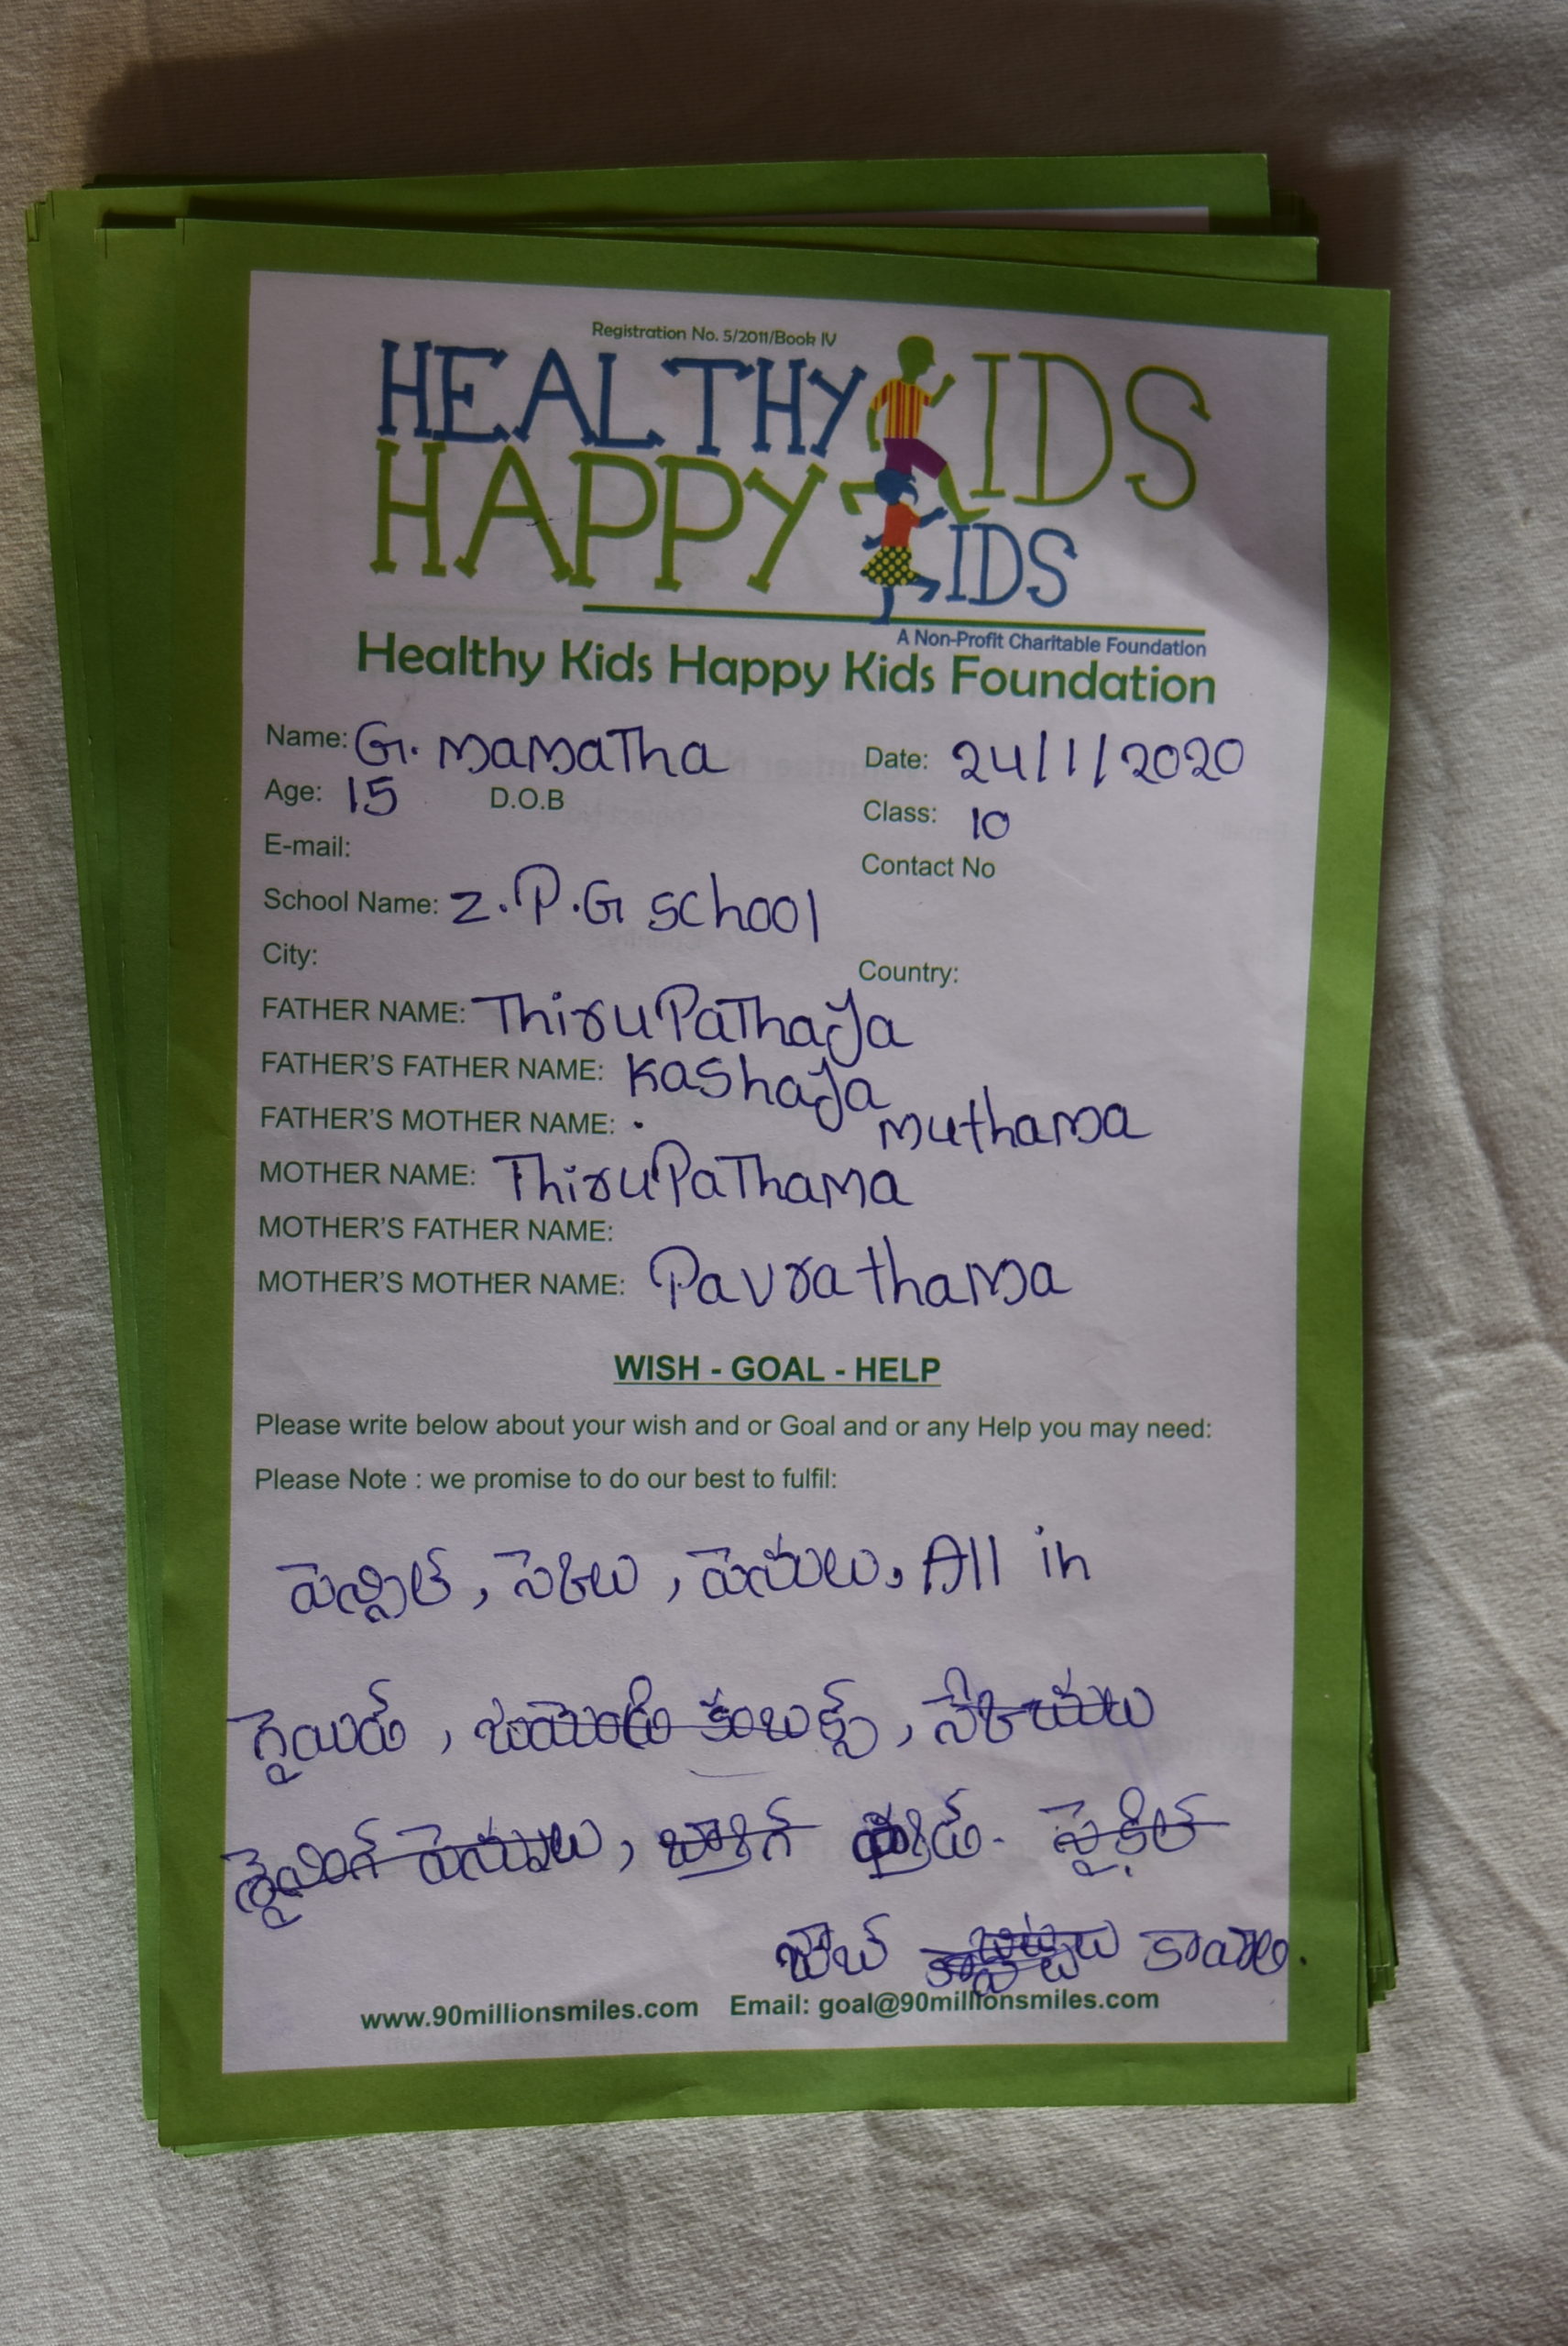 Registration No. 5/2011/Book IV
HEALTHY KIDS
HAPPY KIDS
A Non-Profit Charitable Foundation
Healthy Kids Happy Kids Foundation
Name: G. MaMaTha Date: 24/1/2020
Age: 15 D.O.B Class: 10
E-mail: Contact No
School Name: Z.P.G School
City: Country:
FATHER NAME: ThiruPaThaya
FATHER'S FATHER NAME: Kashaya
FATHER'S MOTHER NAME: . muthama
MOTHER NAME: ThiruPaThama
MOTHER'S FATHER NAME:
MOTHER'S MOTHER NAME: Pavrathama
WISH - GOAL - HELP
Please write below about your wish and or Goal and or any Help you may need:
Please Note : we promise to do our best to fulfil:
పెన్సిల్, పెనులు, All in
గైయిడ్,
సైకిల్
కావాలి.
www.90millionsmiles.com Email: goal@90millionsmiles.com